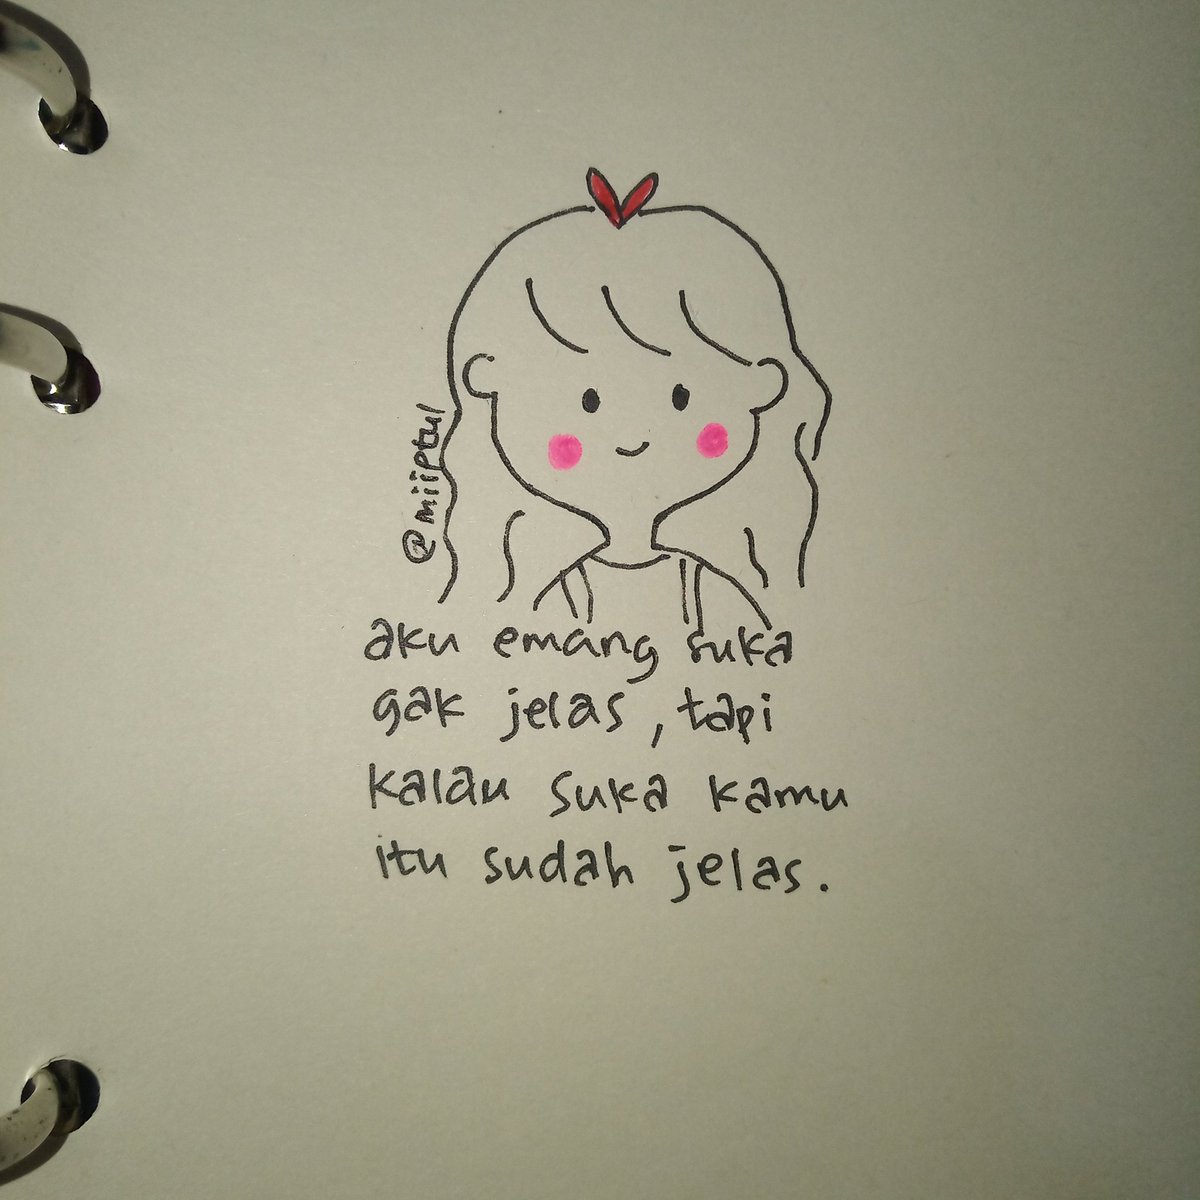 @miiptul
aku emang suka
gak jelas, tapi
kalau suka kamu
itu sudah jelas.